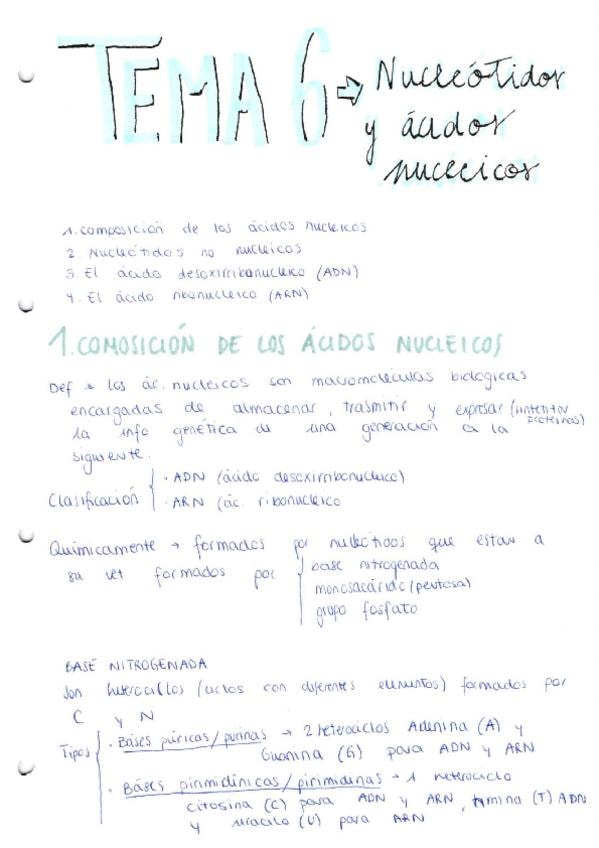 TEMA 6 ⇒ Nucleótidos
y ácidos
nucleicos
1. composición de los ácidos nucleicos
2. Nucleótidos no nucleicos
3. El ácido desoxirribonucleico (ADN)
4. El ácido ribonucleico (ARN)
1. COMOSICIÓN DE LOS ÁCIDOS NUCLEICOS
Def → los ác. nucleicos son macromoléculas biológicas
encargadas de almacenar, trasmitir y expresar (sintetizar
la info genética de una generación a la proteínas)
siguiente.
Clasificación
· ADN (ácido desoxirribonucleico)
· ARN (ác. ribonucleico
Químicamente → formados por nucleótidos que estan a
su vez formados por
base nitrogenada
monosacárido (pentosa)
grupo fosfato
BASE NITROGENADA
Son heterociclos (ciclos con diferentes elementos) formados por
C y N
Tipos
· Báses púricas/purinas → 2 heterociclos Adenina (A) y
Guanina (G) para ADN y ARN
· Báses pirimidínicas/pirimidinas → 1 heterociclo
citosina (C) para ADN y ARN, timina (T) ADN
y uracilo (U) para ARN